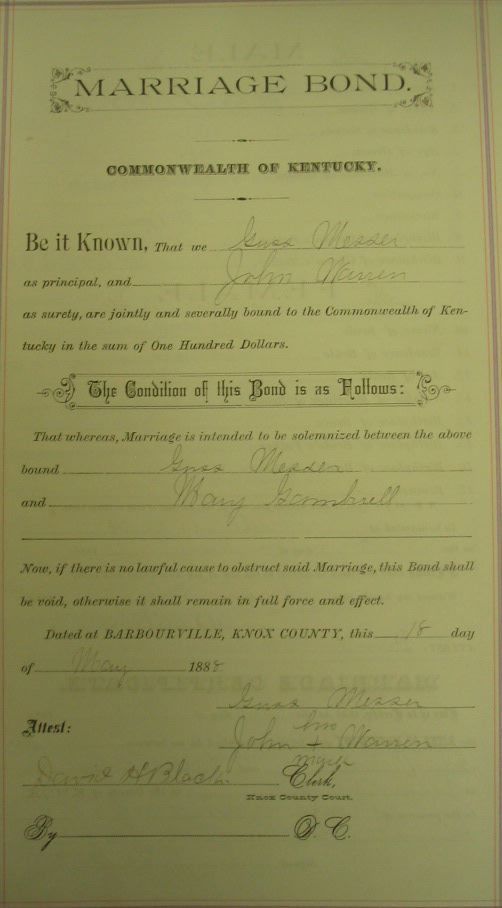 MARRIAGE BOND.
COMMONWEALTH OF KENTUCKY.
Be it Known, That we Guss Messer
as principal, and John Warren
as surety, are jointly and severally bound to the Commonwealth of Ken-
tucky in the sum of One Hundred Dollars.
The Condition of this Bond is as Follows:
That whereas, Marriage is intended to be solemnized between the above
bound Guss Messer
and Mary Gambrell
Now, if there is no lawful cause to obstruct said Marriage, this Bond shall
be void, otherwise it shall remain in full force and effect.
Dated at BARBOURVILLE, KNOX COUNTY, this 18 day
of May 1888
Guss Messer
Attest:
his
John + Warren
mark
David H Black Clerk,
Knox County Court.
By D. C.